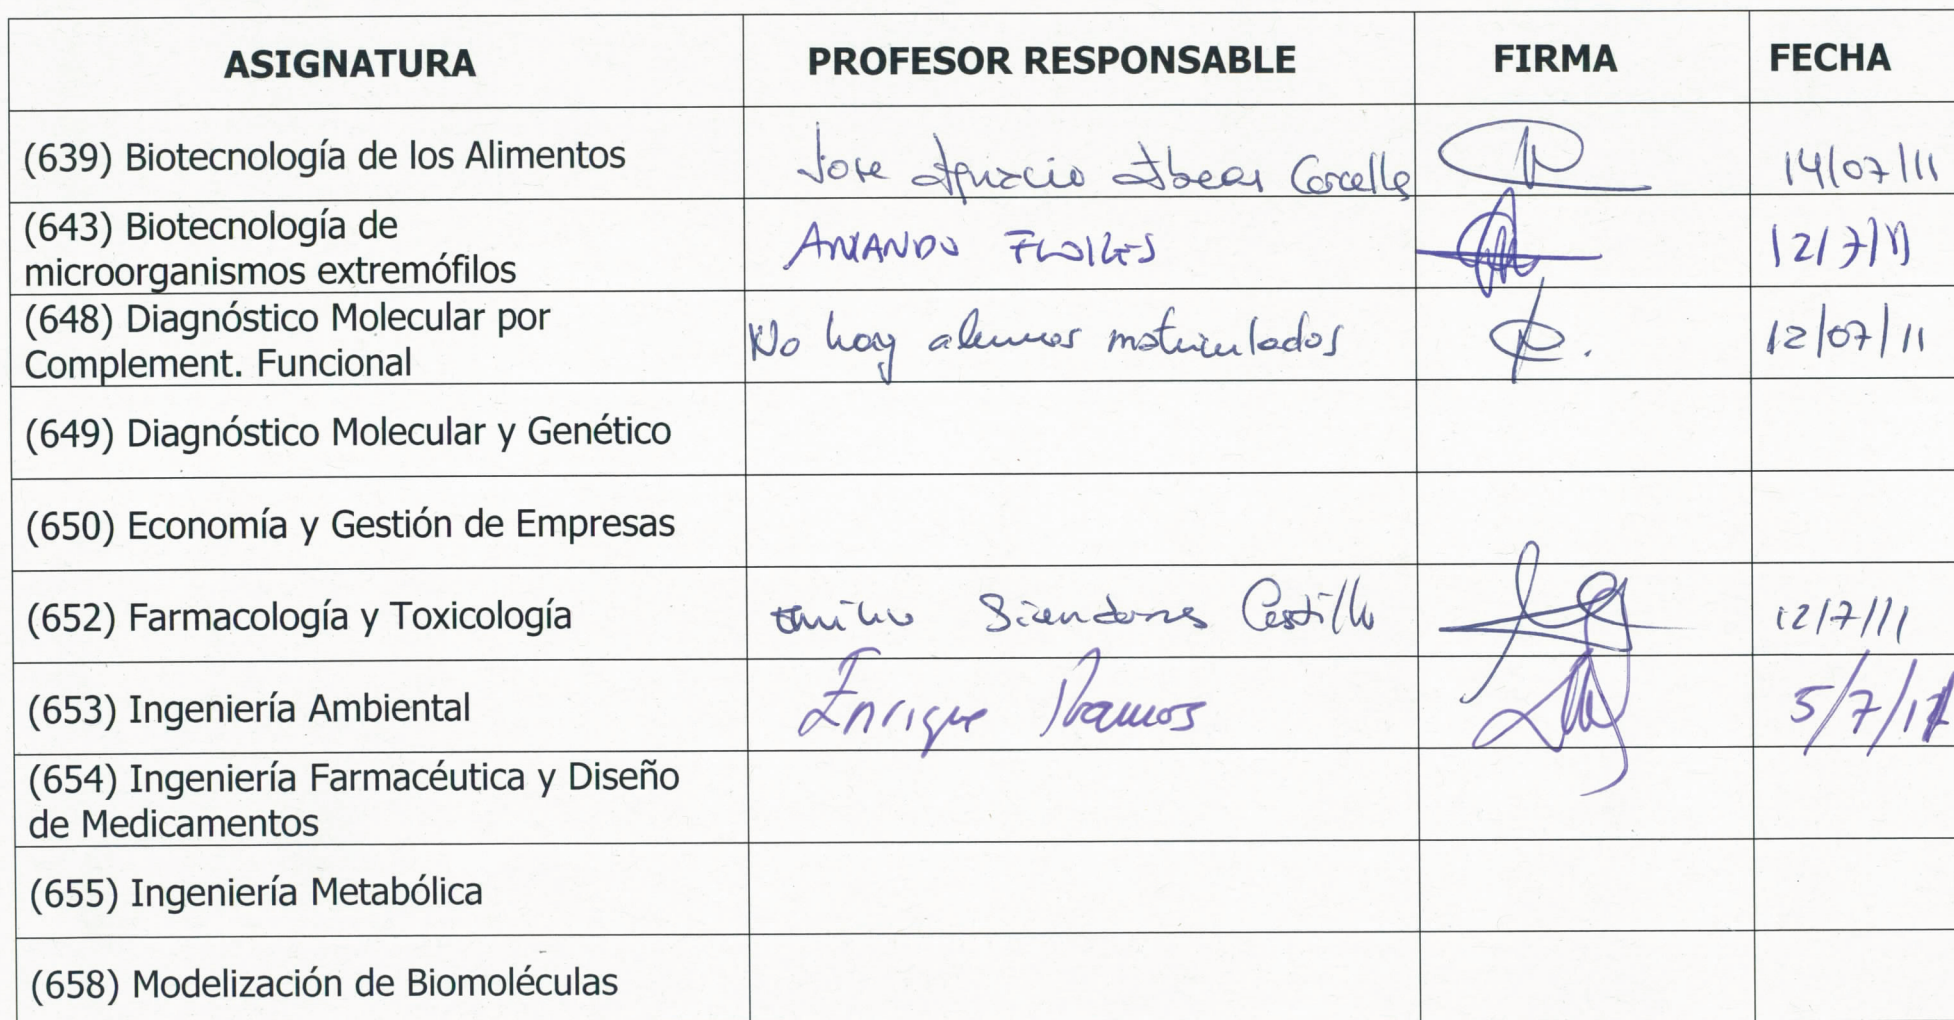 ASIGNATURA PROFESOR RESPONSABLE FIRMA FECHA
(639) Biotecnología de los Alimentos Jose Ignacio Ibeas Corcelles 14/07/11
(643) Biotecnología de
microorganismos extremófilos AMANDO FLORES 12/7/11
(648) Diagnóstico Molecular por
Complement. Funcional No hay alumnos matriculados 12/07/11
(649) Diagnóstico Molecular y Genético
(650) Economía y Gestión de Empresas
(652) Farmacología y Toxicología Emilio Siendones Castillo 12/7/11
(653) Ingeniería Ambiental Enrique Ramos 5/7/11
(654) Ingeniería Farmacéutica y Diseño
de Medicamentos
(655) Ingeniería Metabólica
(658) Modelización de Biomoléculas